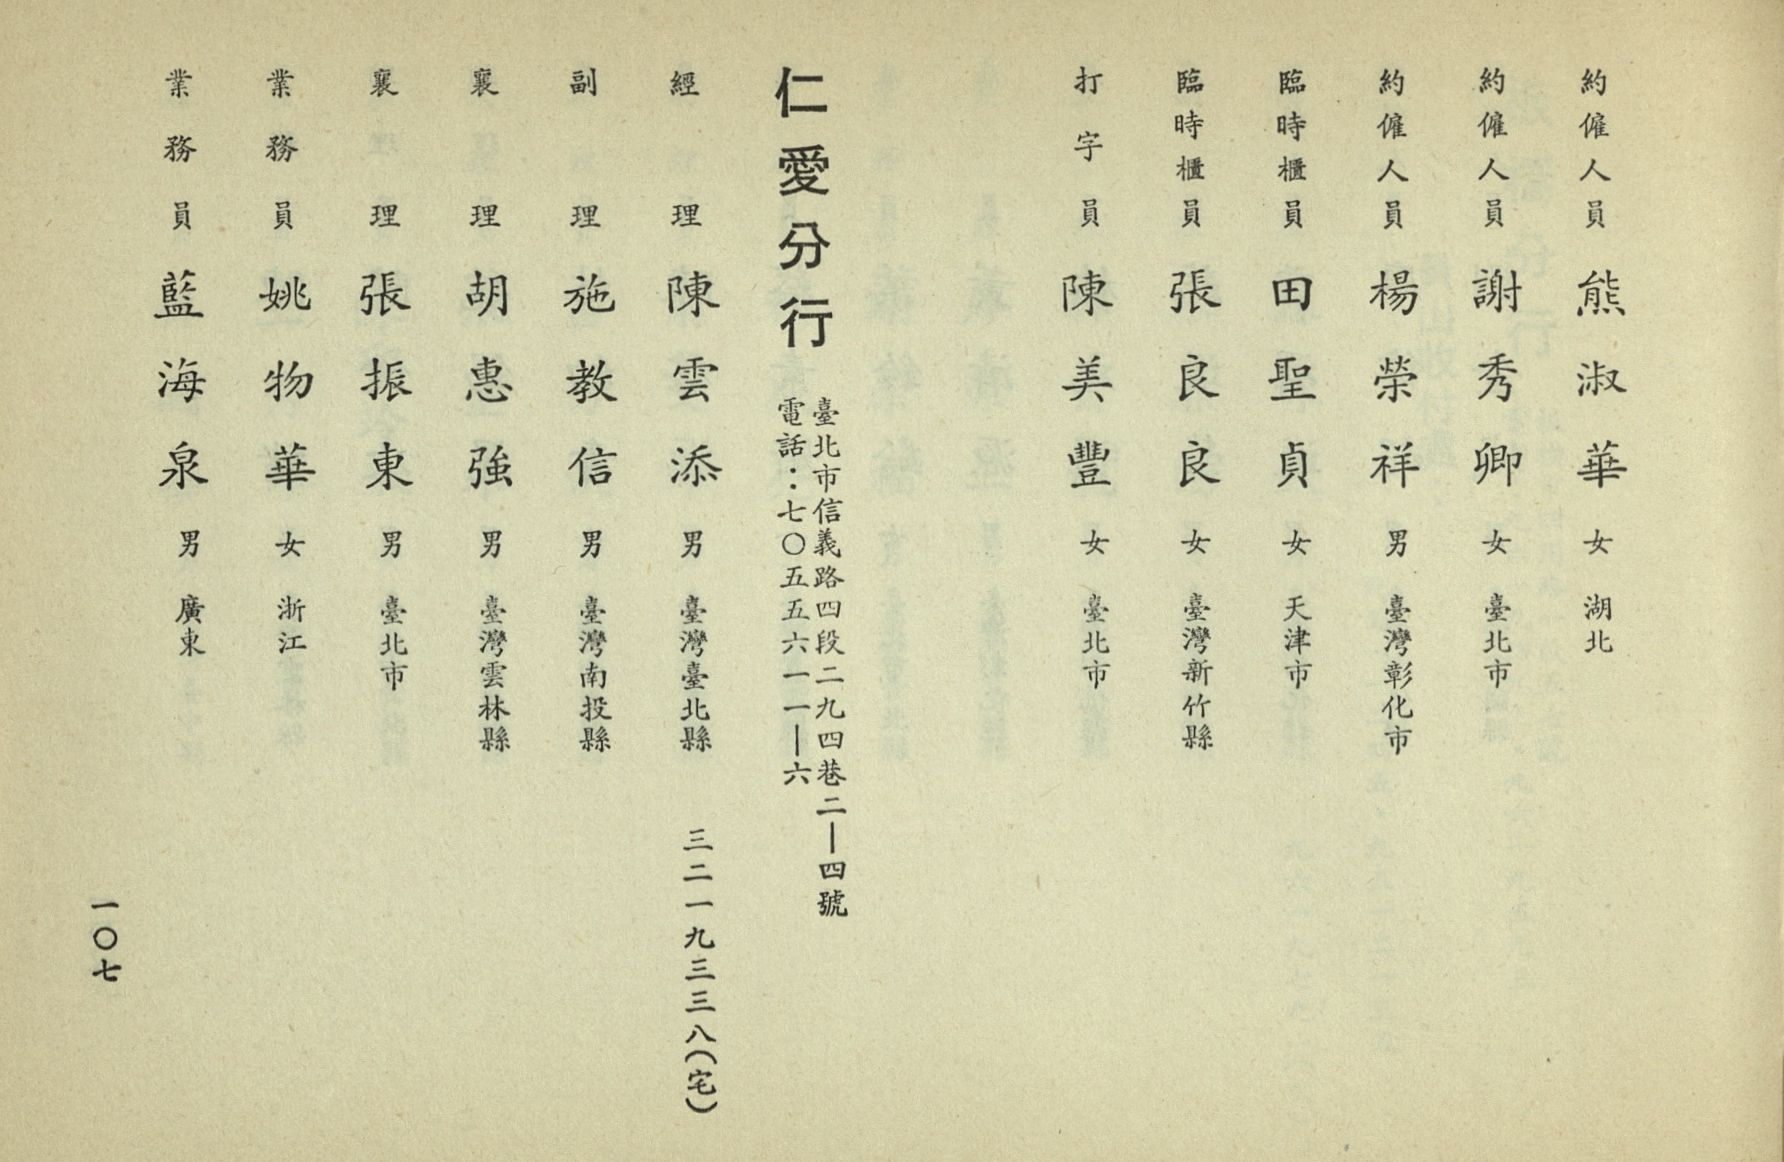 約僱人員 熊淑華 女 湖北
約僱人員 謝秀卿 女 臺北市
約僱人員 楊榮祥 男 臺灣彰化市
臨時櫃員 田聖貞 女 天津市
臨時櫃員 張良良 女 臺灣新竹縣
打字員 陳美豐 女 臺北市
仁愛分行
臺北市信義路四段二九四巷二—四號
電話：七〇五五六一一—六
經理 陳雲添 男 臺灣臺北縣 三二一九三三八(宅)
副理 施教信 男 臺灣南投縣
襄理 胡惠強 男 臺灣雲林縣
襄理 張振東 男 臺北市
業務員 姚物華 女 浙江
業務員 藍海泉 男 廣東
一〇七